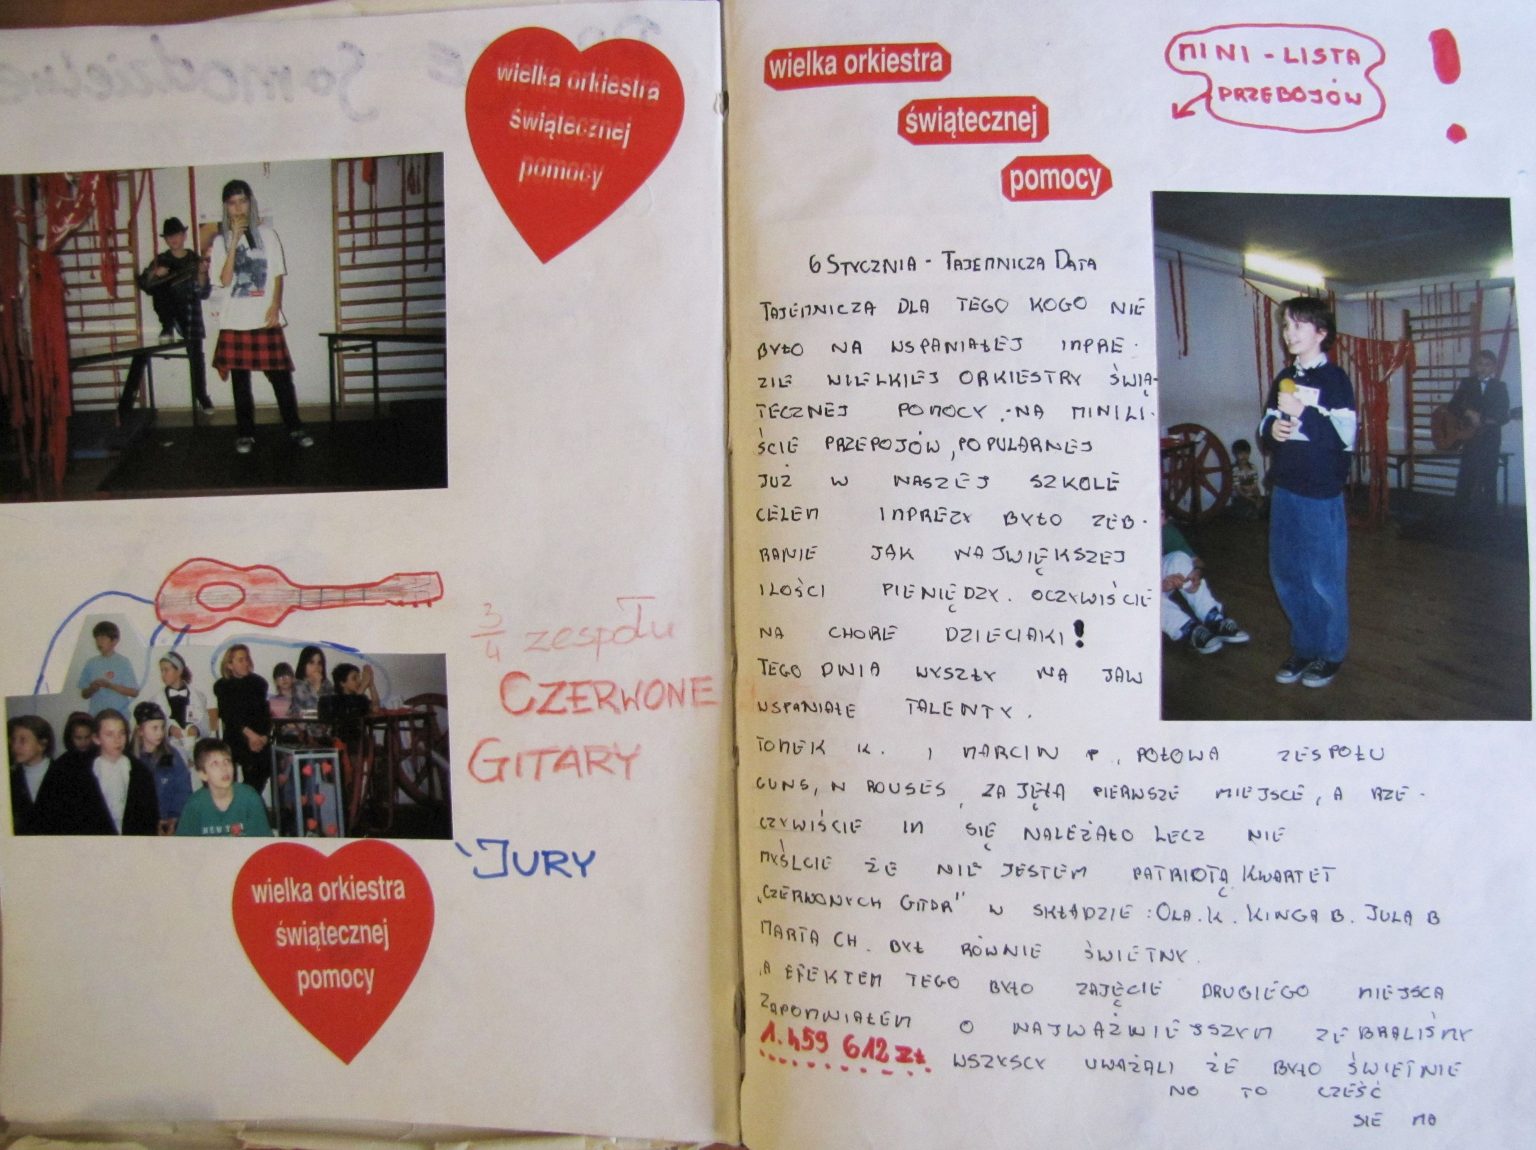 wielka orkiestra
świątecznej
pomocy
3/4 zespołu
CZERWONE
GITARY
JURY
wielka orkiestra
świątecznej
pomocy
wielka orkiestra
świątecznej
pomocy
MINI - LISTA
PRZEBOJÓW
!
6 STYCZNIA - TAJEMNICZA DATA
TAJEMNICZA DLA TEGO KOGO NIE
BYŁO NA WSPANIAŁEJ IMPRE-
ZIE WIELKIEJ ORKIESTRY ŚWIĄ-
TECZNEJ POMOCY. NA MINILI-
ŚCIE PRZEPOJÓW, POPULARNEJ
JUŻ W NASZEJ SZKOLE
CELEM IMPREZY BYŁO ZEB-
RANIE JAK NAJWIĘKSZEJ
ILOŚCI PIENIĘDZY. OCZYWIŚCIE
NA CHORE DZIECIAKI!
TEGO DNIA WYSZŁY NA JAW
WSPANIAŁE TALENTY.
TOMEK K. I MARCIN P., POŁOWA ZESPOŁU
GUNS, N ROUSES, ZAJĘŁA PIERWSZE MIEJSCE, A RZE-
CZYWIŚCIE IM SIĘ NALEŻAŁO LECZ NIE
MYŚLCIE ŻE NIE JESTEM PATRIOTĄ KWARTET
„CZERWONYCH GITAR" W SKŁADZIE: OLA. K. KINGA B. JULA B
MARTA CH. BYŁ RÓWNIE ŚWIETNY.
A EFEKTEM TEGO BYŁO ZAJĘCIE DRUGIEGO MIEJSCA
ZAPOMNIAŁEM O NAJWAŻNIEJSZYM ZEBRALIŚMY
1.459 612 ZŁ WSZYSCY UWAŻALI ŻE BYŁO ŚWIETNIE
NO TO CZEŚĆ
SIE MA